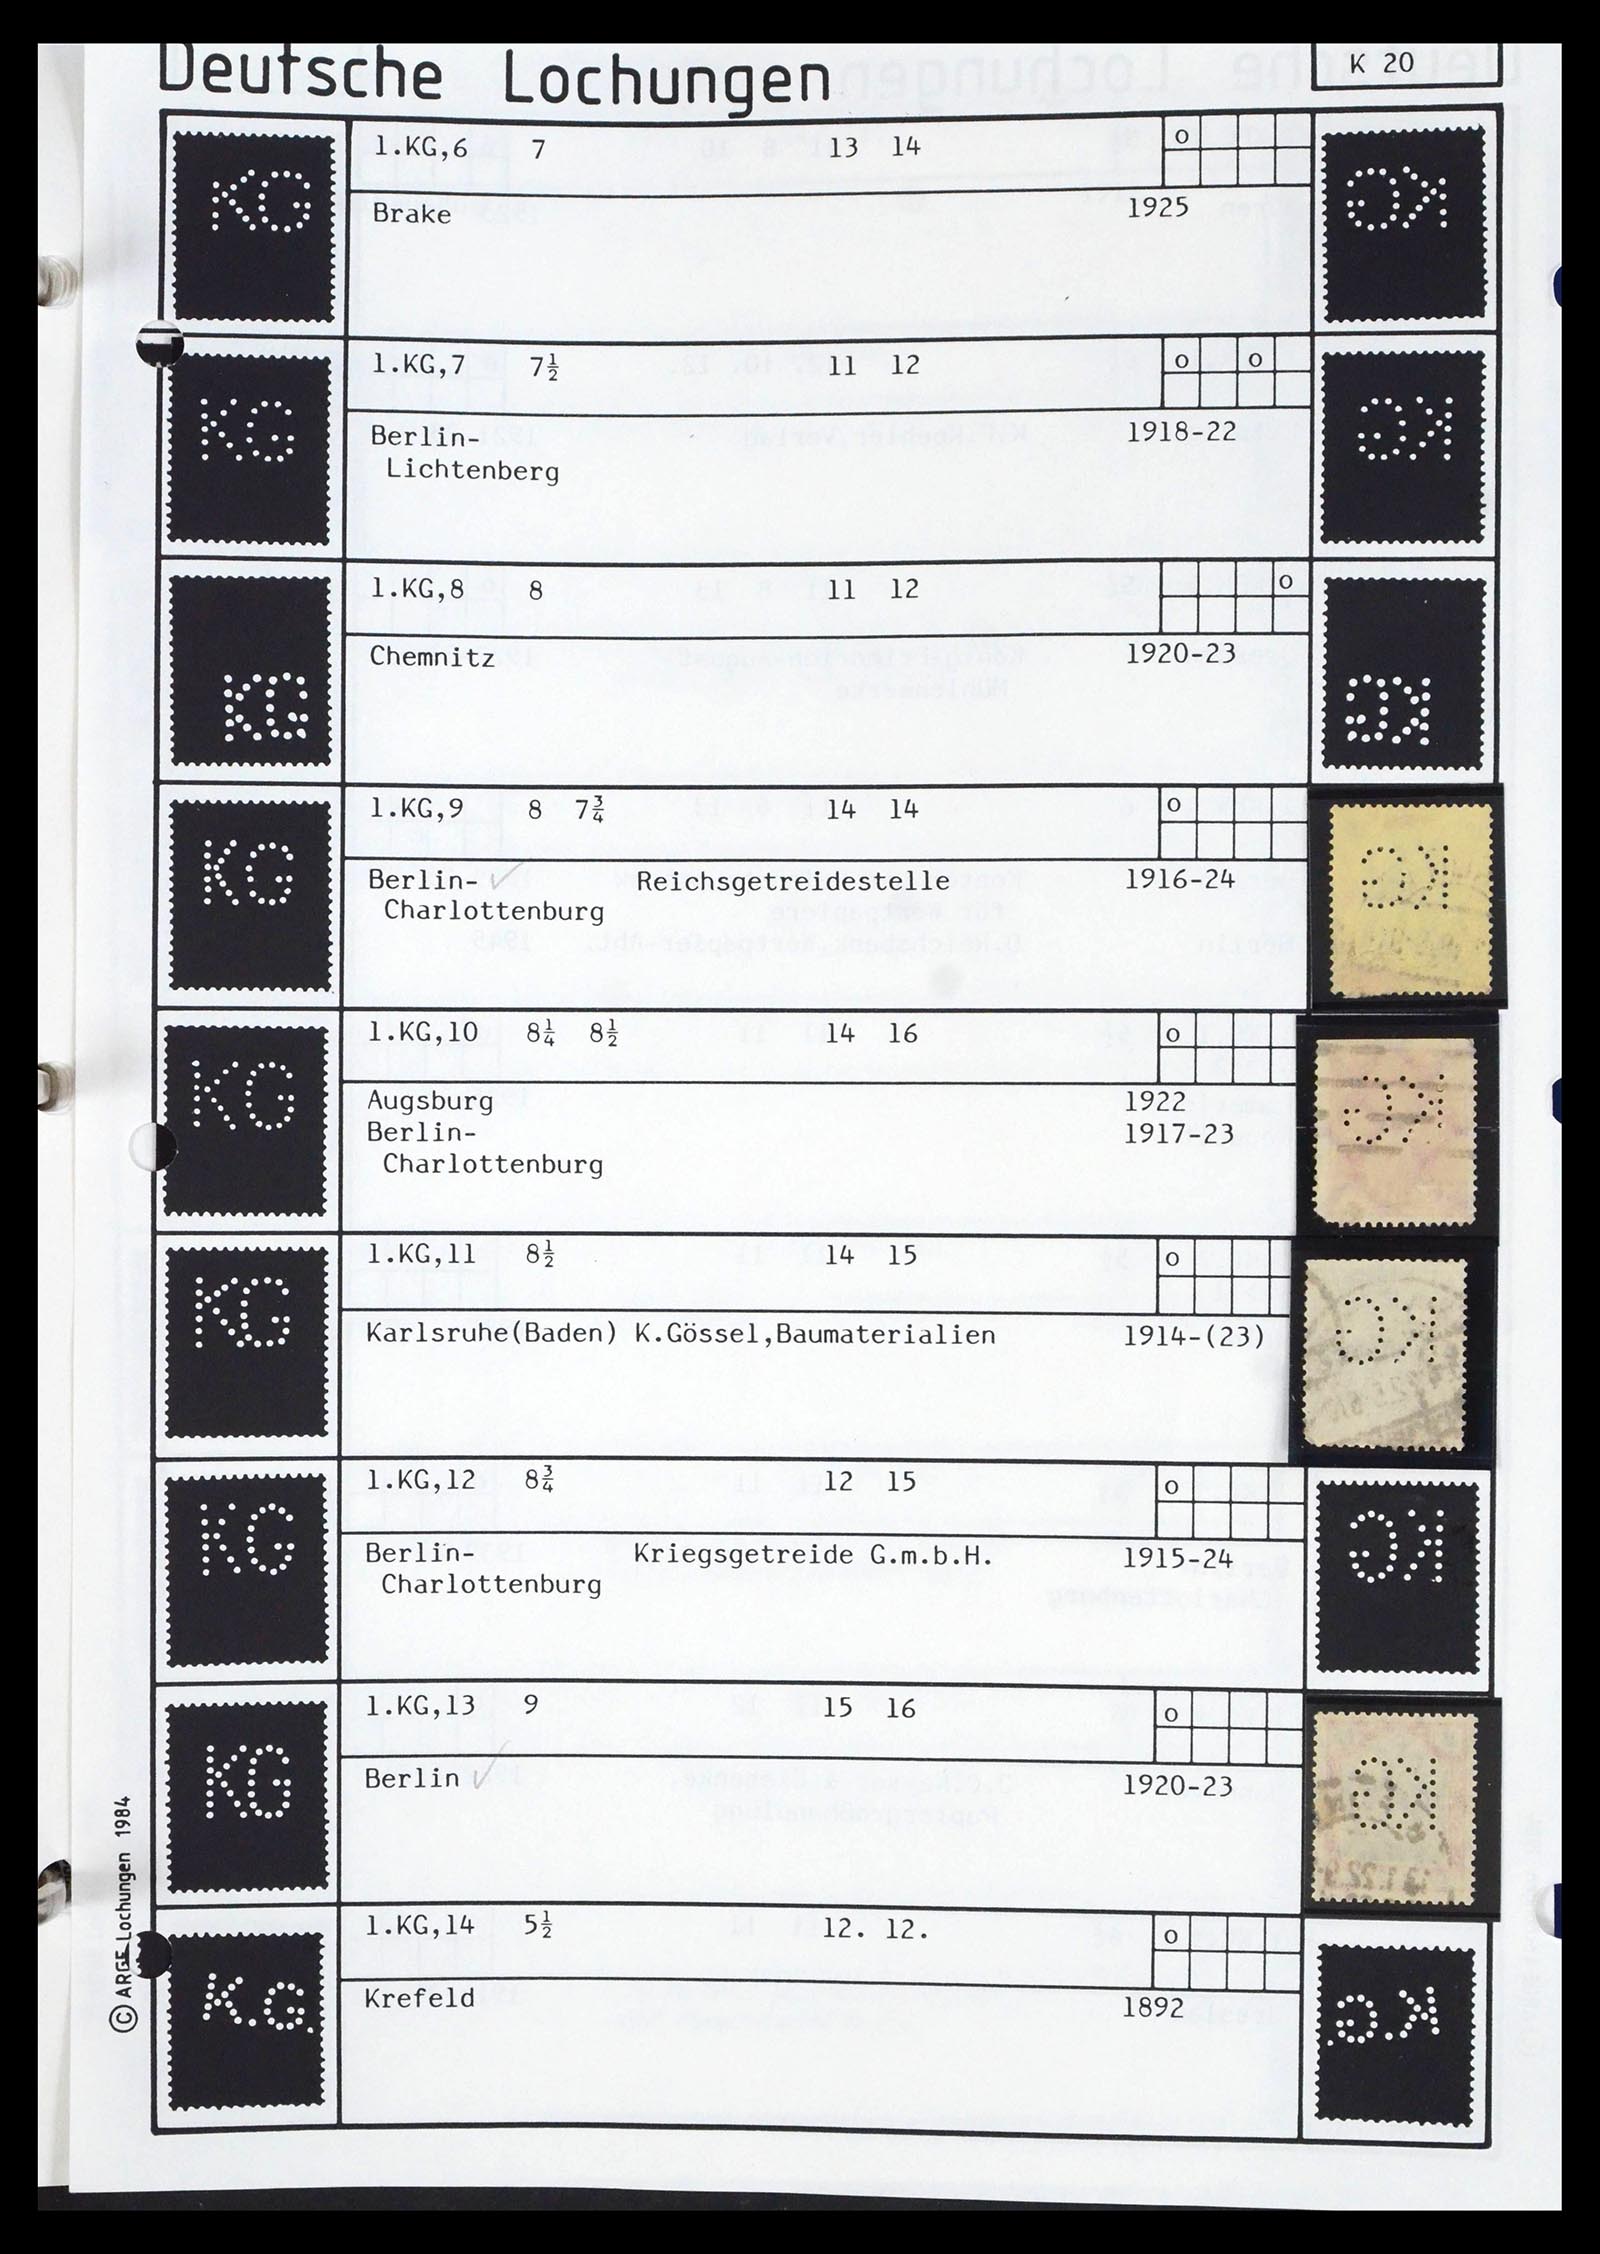 Deutsche Lochungen
K 20
KG
1.KG,6 7 13 14 o
Brake 1925
KG
1.KG,7 7½ 11 12 o o
Berlin- 1918-22
Lichtenberg
KG
1.KG,8 8 11 12 o
Chemnitz 1920-23
KG
1.KG,9 8 7¾ 14 14 o
Berlin- ✓ Reichsgetreidestelle 1916-24
Charlottenburg
KG
1.KG,10 8¼ 8½ 14 16 o
Augsburg 1922
Berlin- 1917-23
Charlottenburg
KG
1.KG,11 8½ 14 15 o
Karlsruhe(Baden) K.Gössel,Baumaterialien 1914-(23)
KG
1.KG,12 8¾ 12 15 o
Berlin- Kriegsgetreide G.m.b.H. 1915-24
Charlottenburg
KG
1.KG,13 9 15 16 o
Berlin ✓ 1920-23
K.G.
1.KG,14 5½ 12. 12. o
Krefeld 1892
© ARGE Lochungen 1984